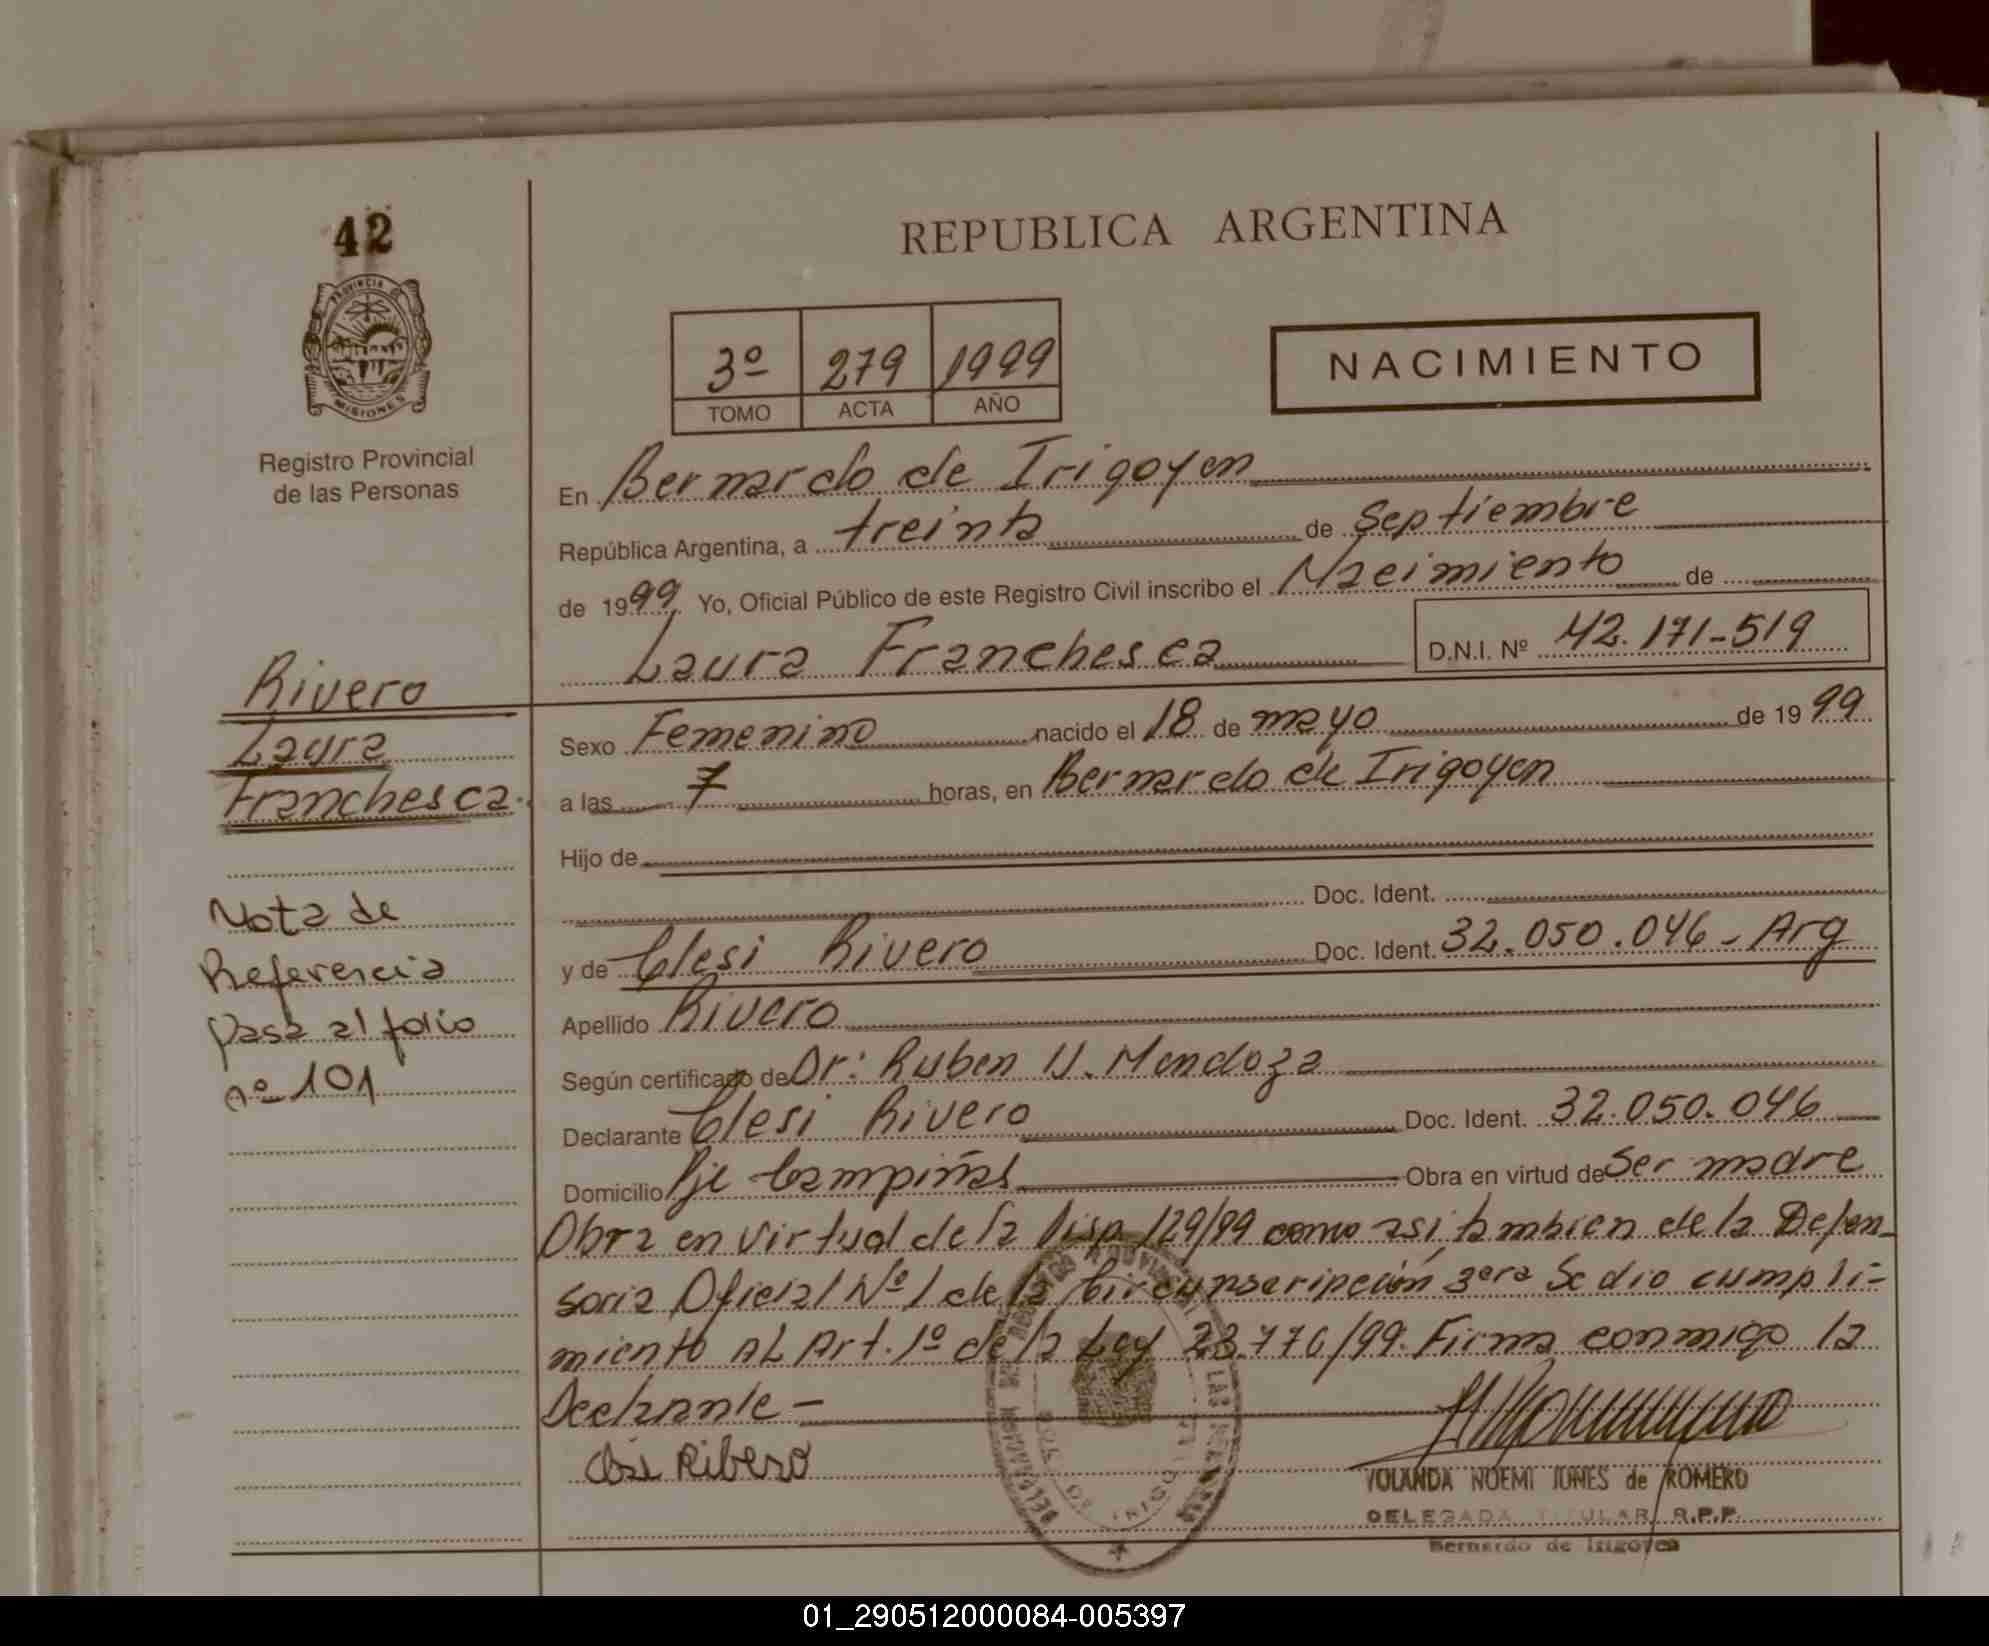 42
PROVINCIA DE
MISIONES
Registro Provincial
de las Personas
REPUBLICA ARGENTINA
3º 279 1999
TOMO ACTA AÑO
NACIMIENTO
En Bernardo de Irigoyen
República Argentina, a treinta de Septiembre
de 1999 Yo, Oficial Público de este Registro Civil inscribo el Nacimiento de
Laura Franchesca D.N.I. Nº 42.171-519
Rivero
Laura
Franchesca.
Sexo Femenino nacido el 18 de mayo de 1999
a las 7 horas, en Bernardo de Irigoyen
Hijo de
Doc. Ident.
y de Clesi Rivero Doc. Ident. 32.050.046 - Arg
Apellido Rivero
Según certificado de Dr: Ruben N. Mendoza
Declarante Clesi Rivero Doc. Ident. 32.050.046
Domicilio Pje Campiñas Obra en virtud de Ser madre
Obra en virtud de la Disp 129/99 como así tambien de la Defen-
soria Oficial Nº 1 de la Circunscripción 3era Se dio cumpli-
miento AL Art. 1º de la Ley 23.776/99. Firma conmigo la
Declarante -
Nota de
Referencia
pasa al folio
nº 101
Ribero
YOLANDA NOEMI JUNES de ROMERO
DELEGADA TITULAR R.P.P.
Bernardo de Irigoyen
01_290512000084-005397